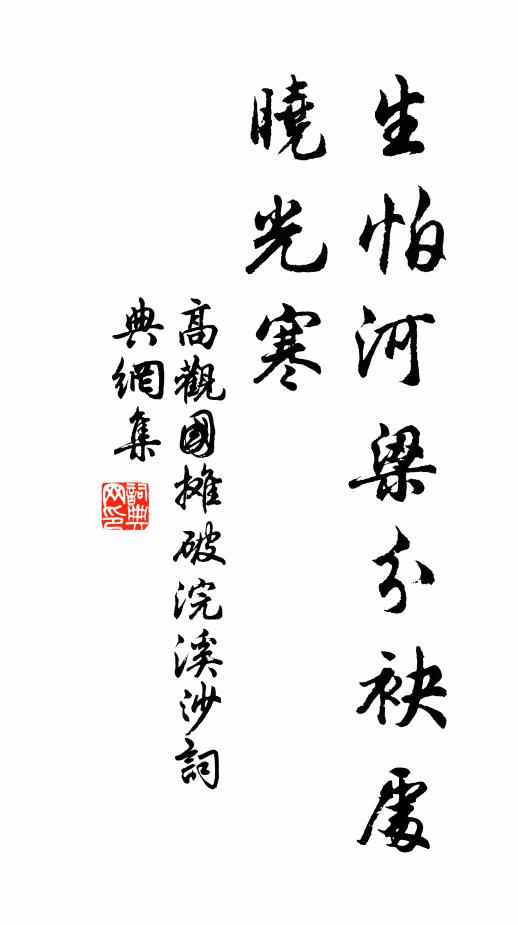 生怕河梁分袂處
曉光寒
高觀國攤破浣溪沙詞
典網集
詞典
网印